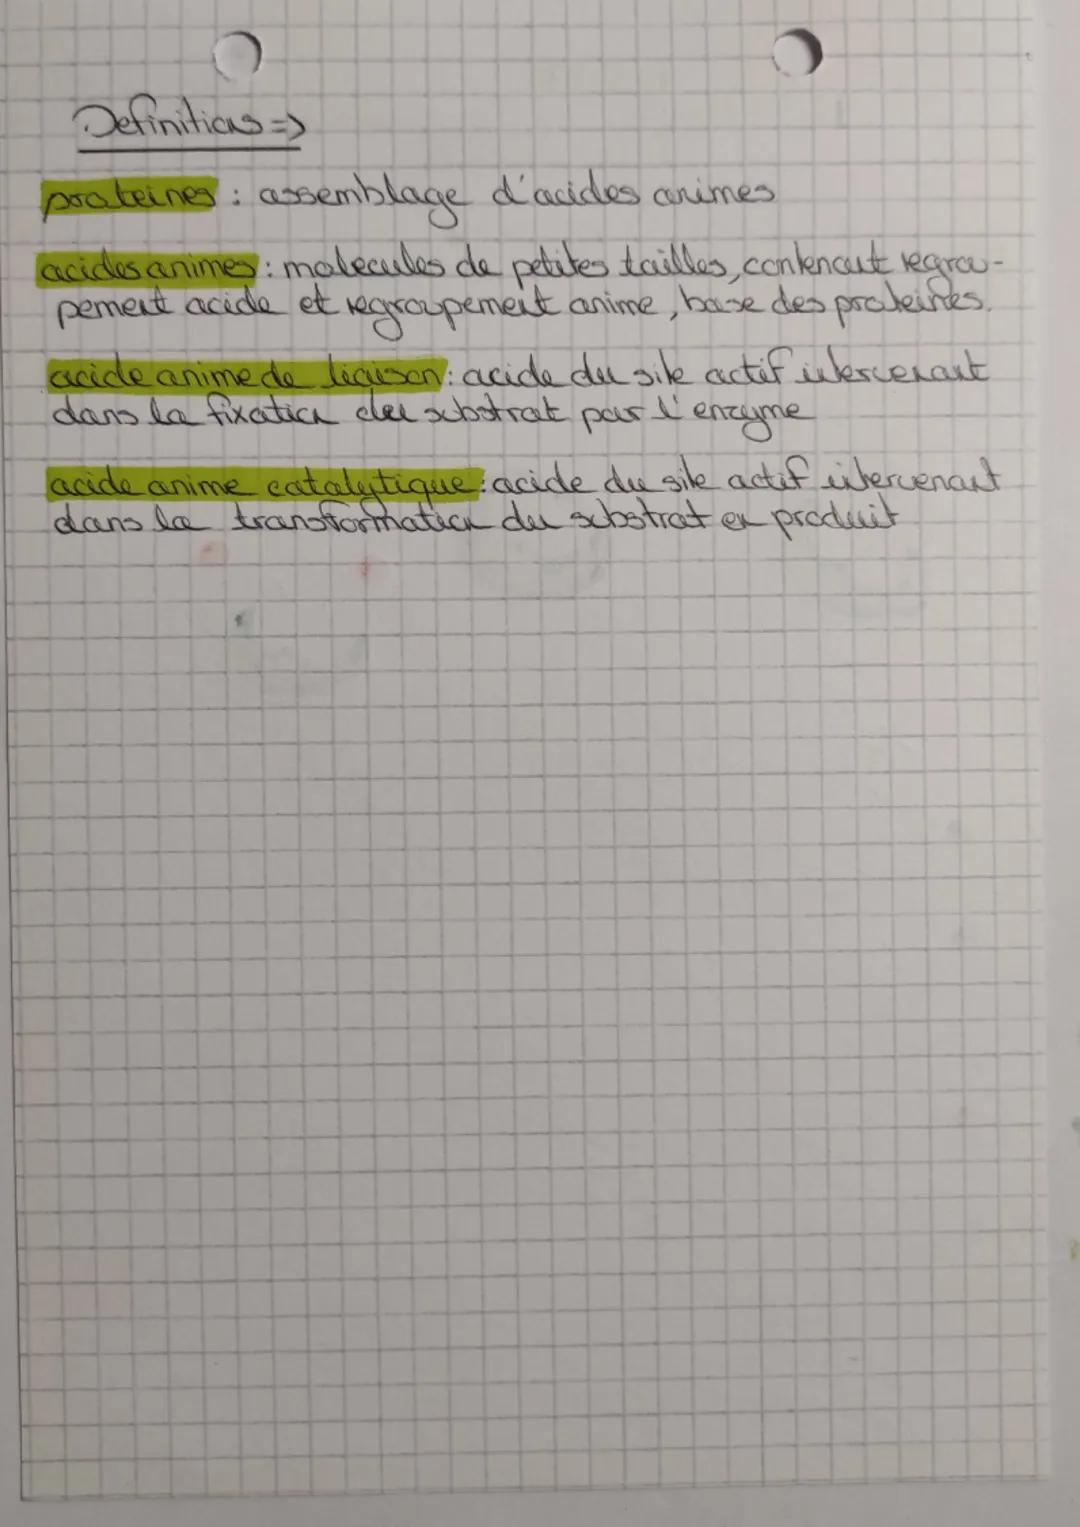 Definitions =>
proteines : assemblage d'acides animes
acides animes : molecules de petites tailles, contenant regrou-
pement acide et regroupement anime, base des proteines.
acide anime de liaison : acide du site actif intervenant
dans la fixation du substrat par l'enzyme
acide anime catalytique : acide du site actif intervenant
dans la transformation du substrat en produit